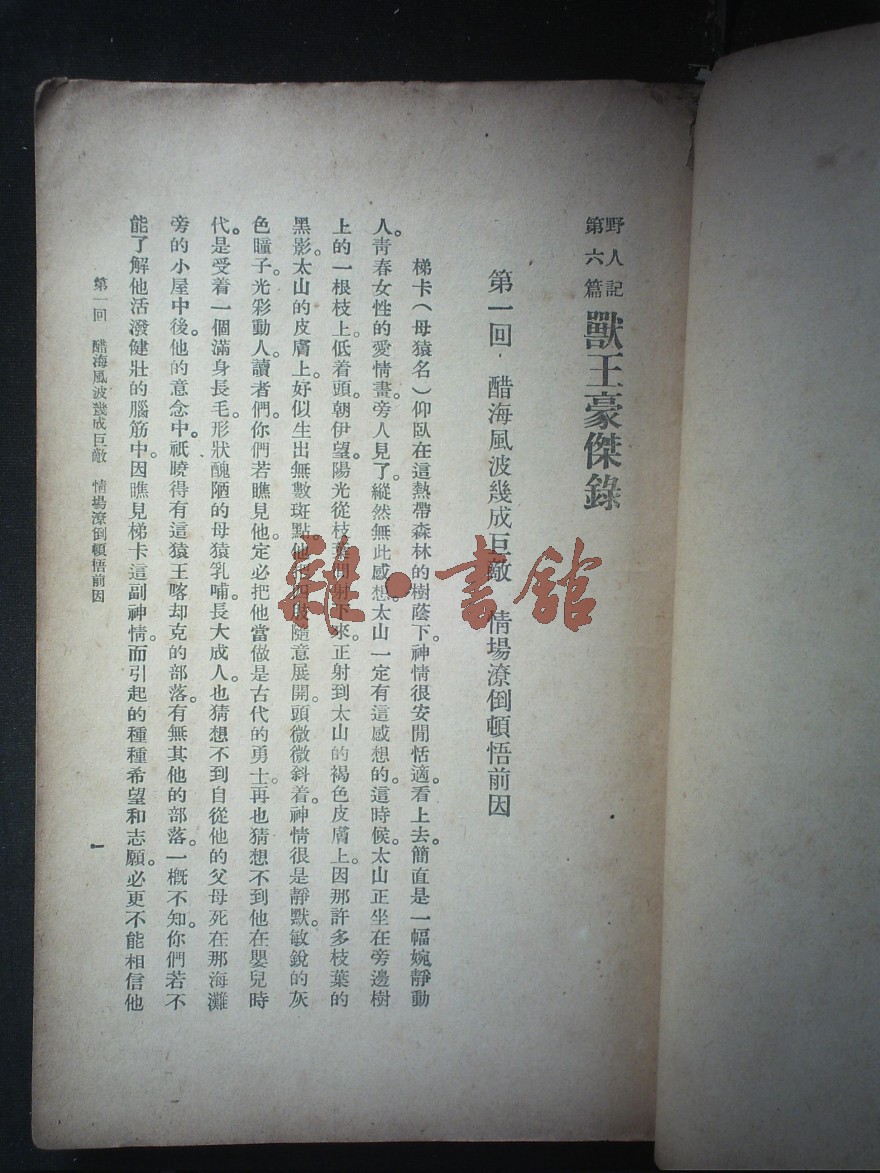 野人記
第六篇
獸王豪傑錄
第一回　醋海風波幾成巨敵　情場潦倒頓悟前因
梯卡（母猿名）仰臥在這熱帶森林的樹蔭下。神情很安閒恬適。看上去。簡直是一幅婉靜動
人。靑春女性的愛情畫。旁人見了。縱然無此感想。太山一定有這感想的。這時候。太山正坐在旁邊樹
上的一根枝上。低着頭。朝伊望。陽光從枝葉間射下來。正射到太山的褐色皮膚上。因那許多枝葉的
黑影。太山的皮膚上。好似生出無數斑點。他把四肢隨意展開。頭微微斜着。神情很是靜默。敏銳的灰
色瞳子。光彩動人。讀者們。你們若瞧見他。定必把他當做是古代的勇士。再也猜想不到他在嬰兒時
代。是受着一個滿身長毛。形狀醜陋的母猿乳哺。長大成人。也猜想不到自從他的父母死在那海灘
旁的小屋中後。他的意念中。祇曉得有這猿王喀却克的部落。有無其他的部落。一概不知。你們若不
能了解他活潑健壯的腦筋中。因瞧見梯卡這副神情。而引起的種種希望和志願。必更不能相信他
第一回　醋海風波幾成巨敵　情場潦倒頓悟前因
一
雜·書館